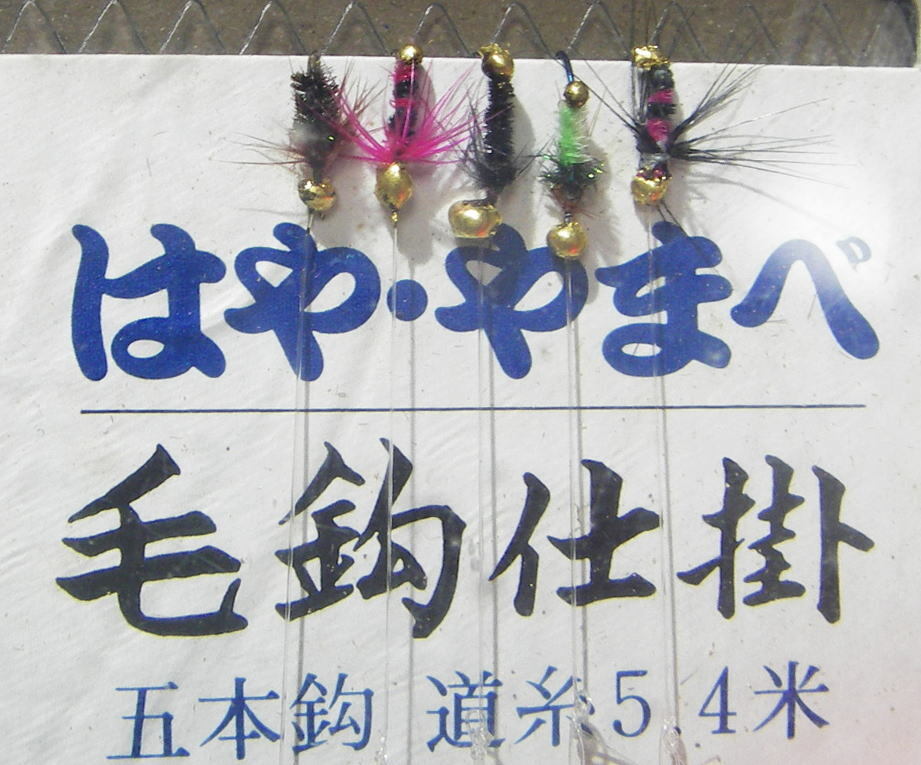 はや・やまべ
毛鈎仕掛
五本鈎 道糸5.4米